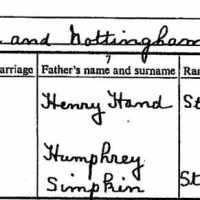 and Nottingham
7
arriage Father's name and surname Ra
Henry Hand St
Humphrey
Simpkin St